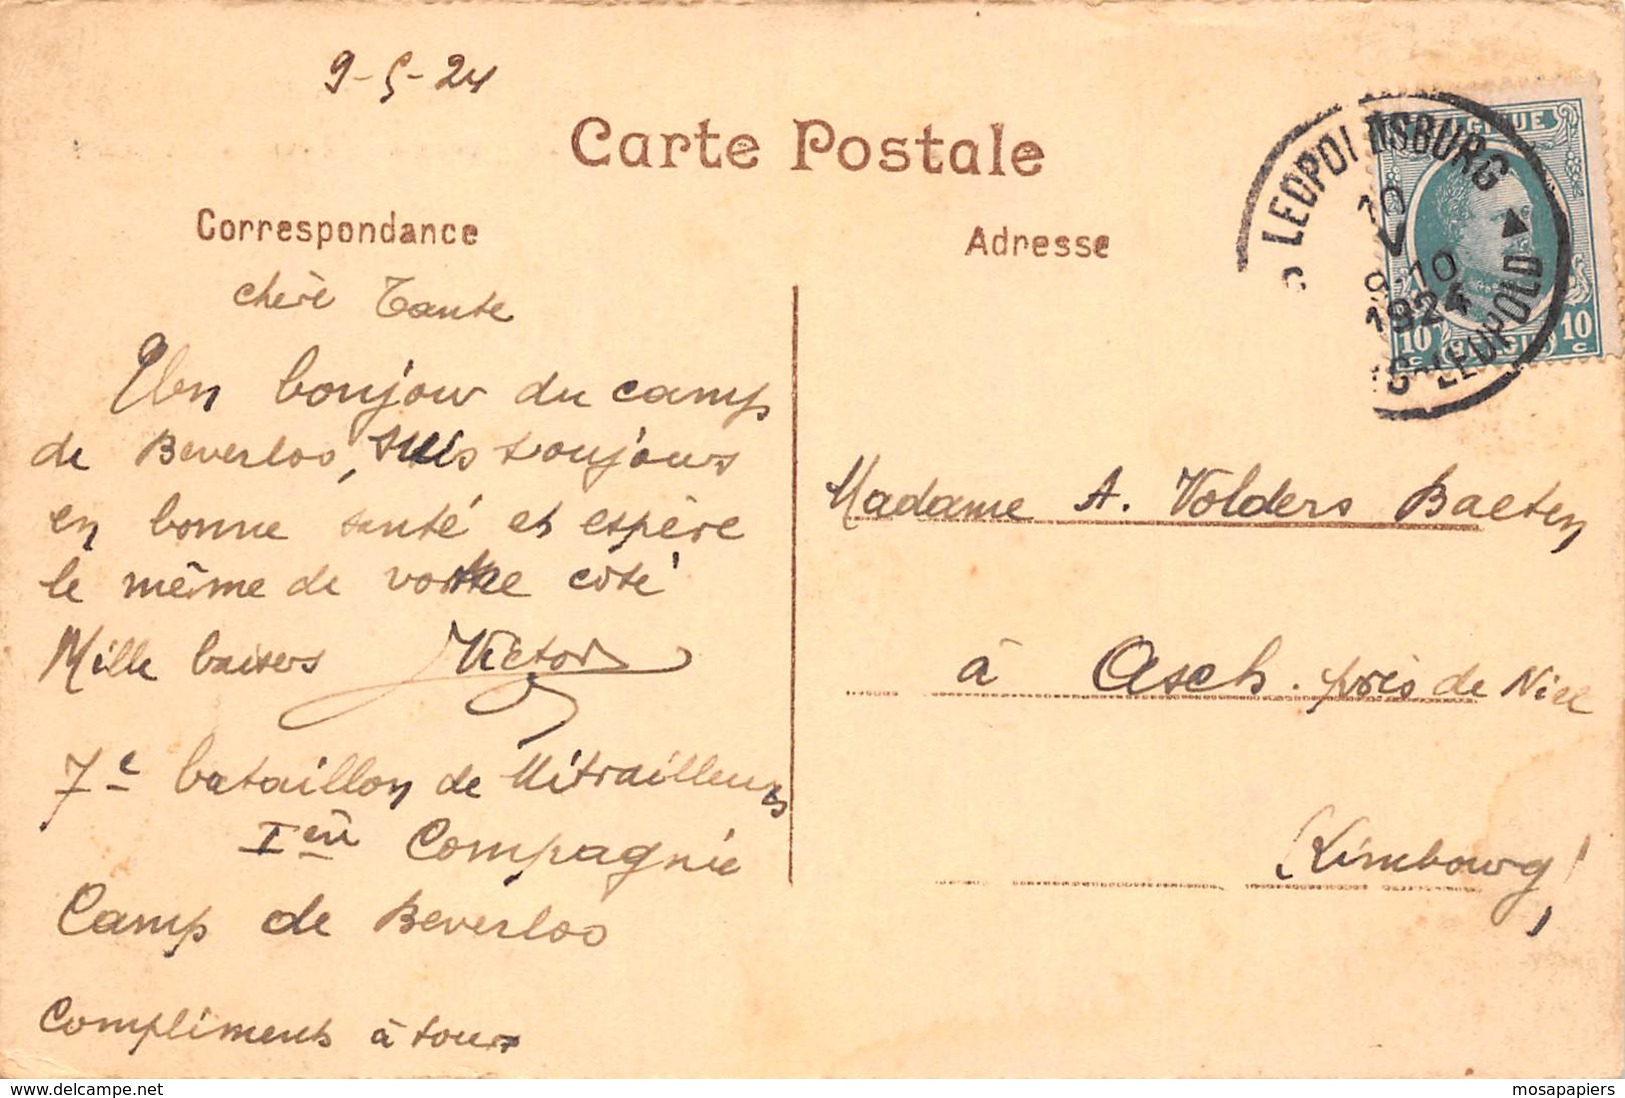 9-5-24
Carte Postale
Correspondance
Adresse
chère Tante
Un bonjour du camp
de Beverloo, suis toujours
en bonne santé et espère
le même de votre coté
Mille baisers Victor
7e bataillon de Mitrailleurs
Ière Compagnie
Camp de Beverloo
Compliments à tous
LEOPOLDSBURG
10
V
8-10
1924
BOURG-LEOPOLD
BELGIQUE
10 c. BELGIË 10 c.
Madame A. Volders Baeten
à Asch. près de Niel
(Limbourg)
delcampe.net
mosapapiers